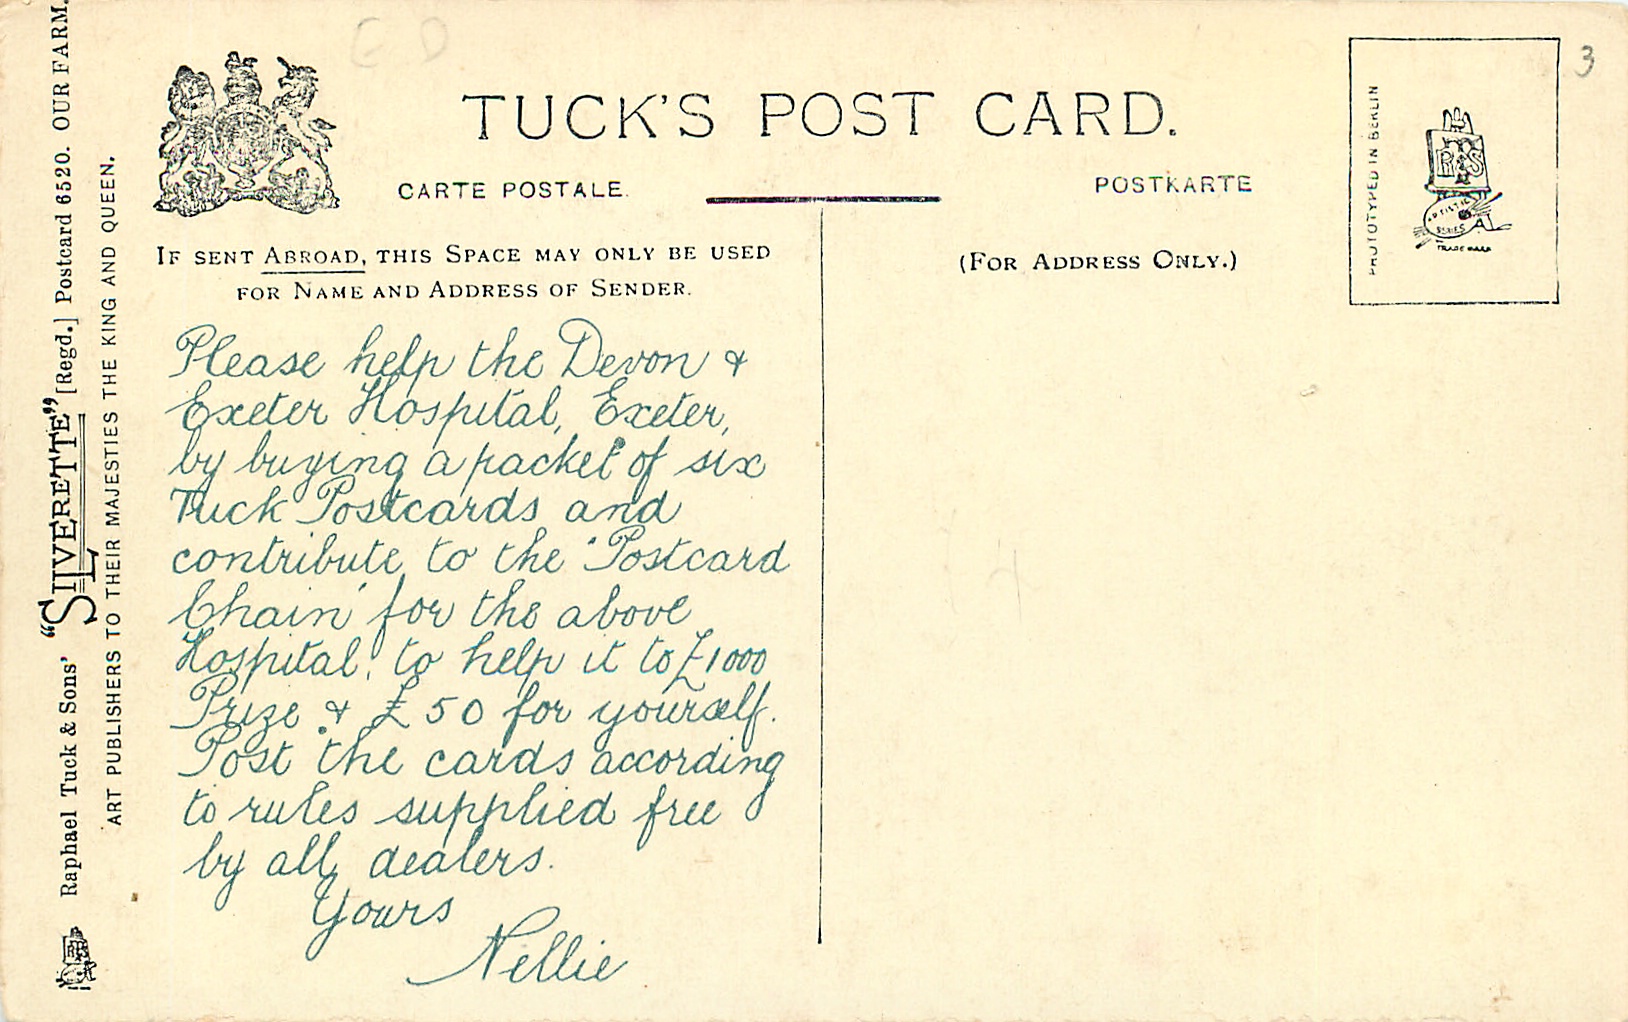 TUCK'S POST CARD.
CARTE POSTALE.
POSTKARTE
IF SENT ABROAD, THIS SPACE MAY ONLY BE USED
FOR NAME AND ADDRESS OF SENDER.
(FOR ADDRESS ONLY.)
PHOTOTYPED IN BERLIN
ARTISTIC
SERIES
TRADE MARK
3
Raphael Tuck & Sons' "SILVERETTE" [Regd.] Postcard 6520. OUR FARM.
ART PUBLISHERS TO THEIR MAJESTIES THE KING AND QUEEN.
Please help the Devon &
Exeter Hospital, Exeter,
by buying a packet of six
Tuck Postcards and
contribute to the "Postcard
Chain" for the above
Hospital, to help it to £1000
Prize & £50 for yourself.
Post the cards according
to rules supplied free
by all dealers.
Yours
Nellie